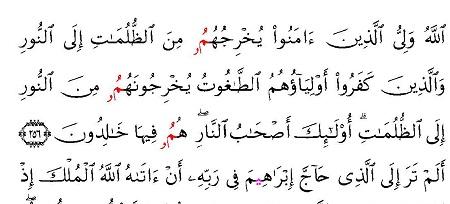 ٱللَّهُ وَلِىُّ ٱلَّذِينَ ءَامَنُوا۟ يُخْرِجُهُمُۥ مِنَ ٱلظُّلُمَـٰتِ إِلَى ٱلنُّورِ
وَٱلَّذِينَ كَفَرُوا۟ أَوْلِيَآؤُهُمُ ٱلطَّـٰغُوتُ يُخْرِجُونَهُمُۥ مِنَ ٱلنُّورِ
إِلَى ٱلظُّلُمَـٰتِۗ أُو۟لَـٰٓئِكَ أَصْحَـٰبُ ٱلنَّارِۖ هُمُۥ فِيهَا خَـٰلِدُونَ ٢٥٦
أَلَمْ تَرَ إِلَى ٱلَّذِى حَآجَّ إِبْرَٰهِيمَ فِى رَبِّهِۦٓ أَنْ ءَاتَىٰهُ ٱللَّهُ ٱلْمُلْكَ إِذْ